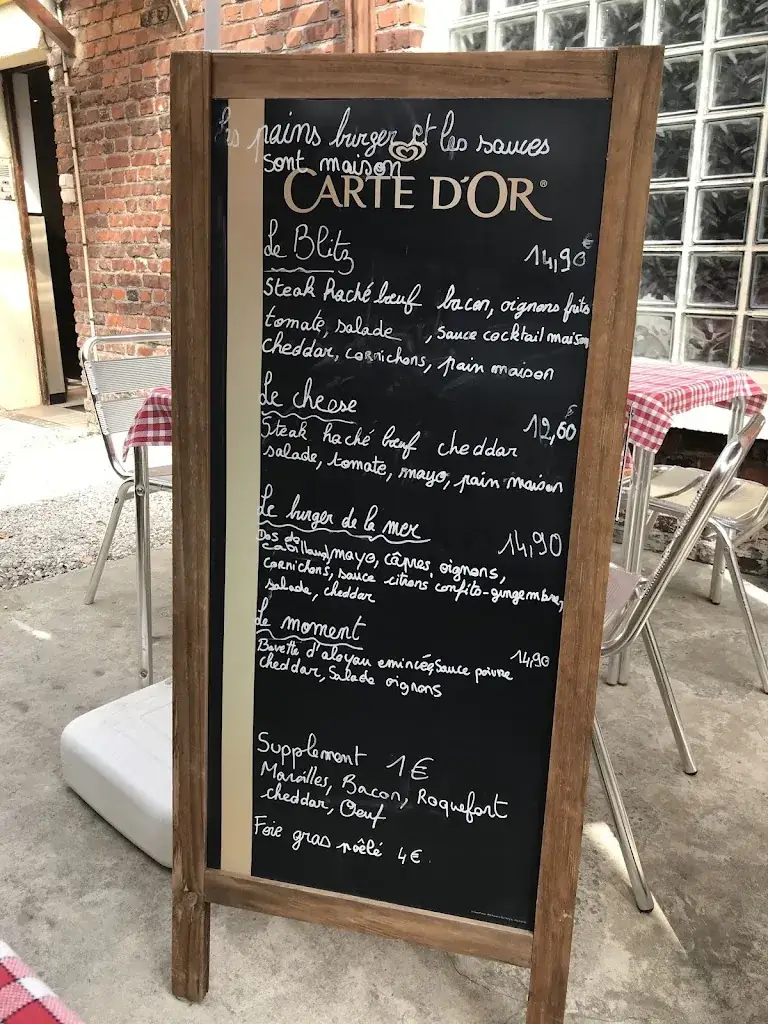 Les pains burger et les sauces
sont maison
CARTE D'OR®
Le Blitz 14,90€
Steak haché bœuf bacon, oignons frits
tomate, salade , sauce cocktail maison
cheddar, cornichons, pain maison
Le cheese 12,60€
Steak haché bœuf cheddar
salade, tomate, mayo, pain maison
Le burger de la mer 14,90
Dos de
cabillaud, mayo, câpres oignons,
cornichons, sauce citrons confits-gingembre,
salade, cheddar
Le moment 14,90
Bavette d'aloyau emincée, Sauce poivre
cheddar, Salade oignons
Supplement 1€
Maroilles, Bacon, Roquefort
cheddar, Oeuf
Foie gras poêlé 4€.